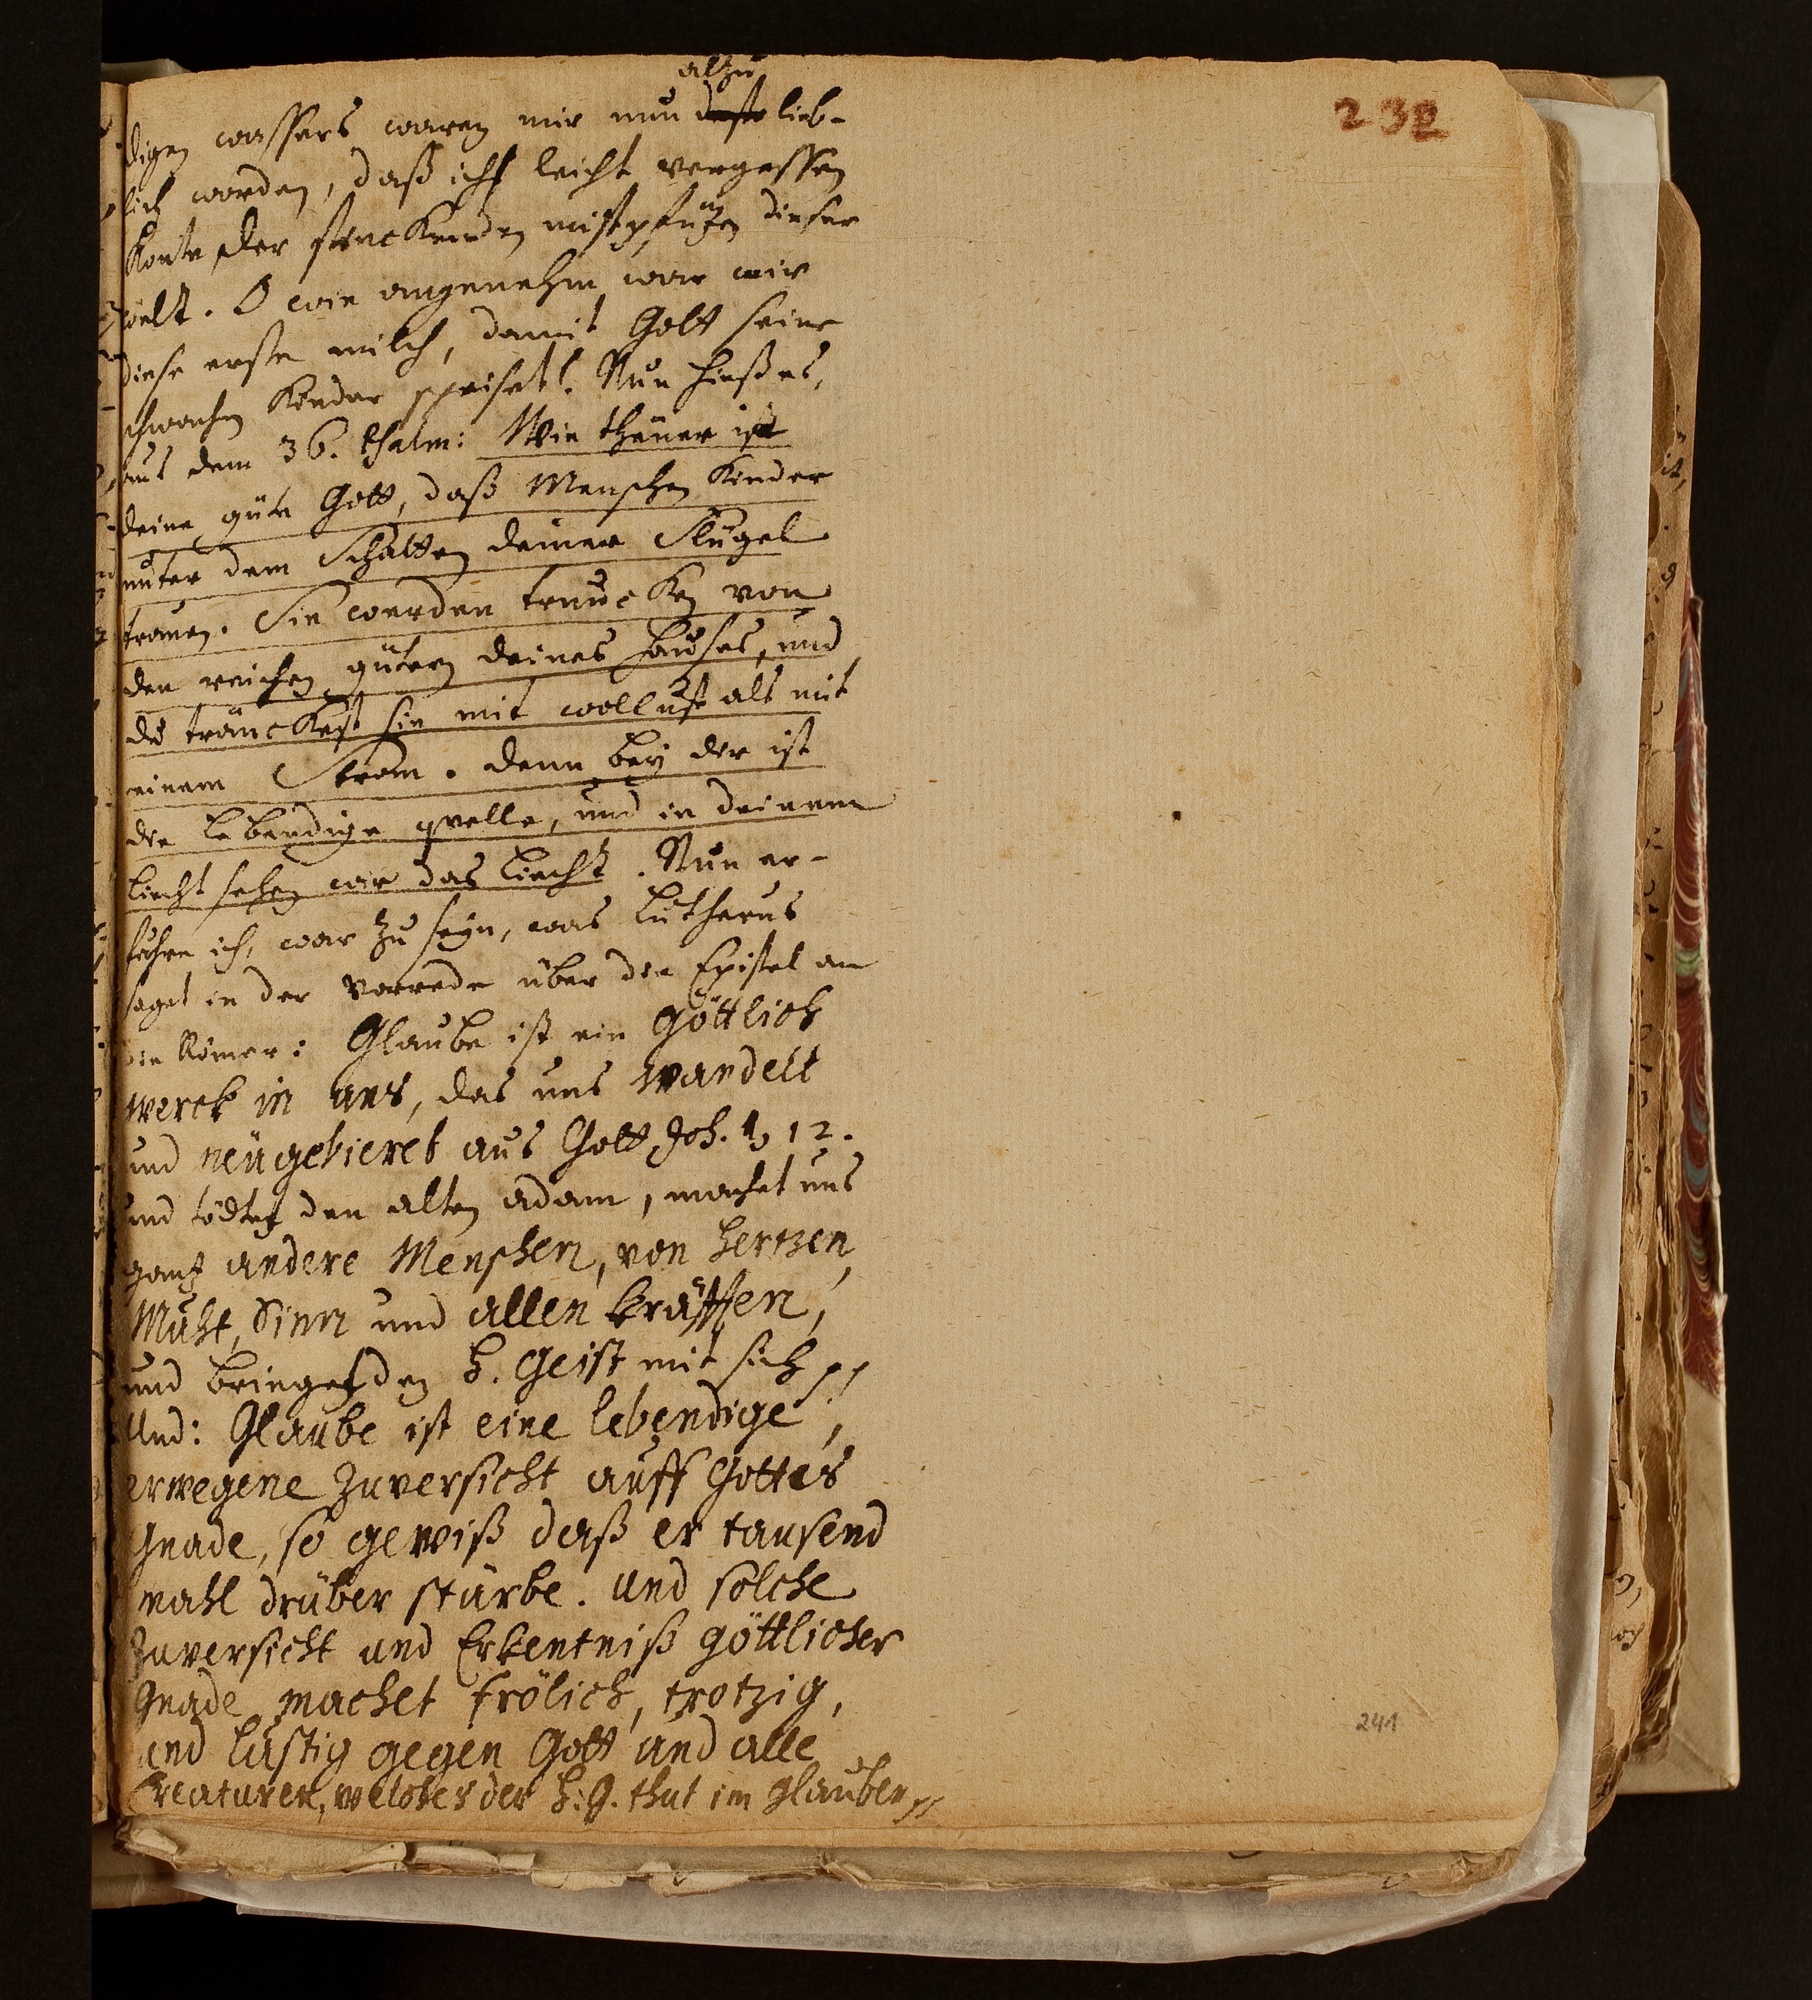 232
digen wassers waren mir nun allzu lieb-
lich worden, daß ich leicht vergessen
konte der stinckenden mistpfützen dieser
welt. O wie angenehm war mir
diese erste milch, damit Gott seine
schwachen Kinder speiset! Nun hieß es,
aus dem 36. Psalm: Wie theuer ist
deine güte Gott, daß Menschen Kinder
unter dem Schatten deiner Flügel
trauen. Sie werden truncken von
den reichen gütern deines Hauses, und
du tränckest sie mit wollust als mit
einem Strom. denn bey dir ist
die lebendige quelle, und in deinem
Liecht sehen wir das Liecht. Nun er-
fuhre ich, war zu seyn, was Lutherus
saget in der Vorrede über die Epistel an
die Römer: Glaube ist ein Göttlich
werck in uns, das uns wandelt
und neu gebieret aus Gott Joh. 1, 12.
und tödtet den alten adam, machet uns
gantz andere Menschen, von Hertzen,
Muht, Sinn und allen kräfften,
und bringet den H. Geist mit sich pp
Und: Glaube ist eine lebendige,
erwegene Zuversicht auff Gottes
Gnade, so gewiß daß er tausend
mahl drüber stürbe. und solche
Zuversicht und Erkentniß göttlicher
Gnade machet frölich, trotzig,
und lustig gegen Gott und alle
Creaturen, welches der H. G. thut im glauben pp
241